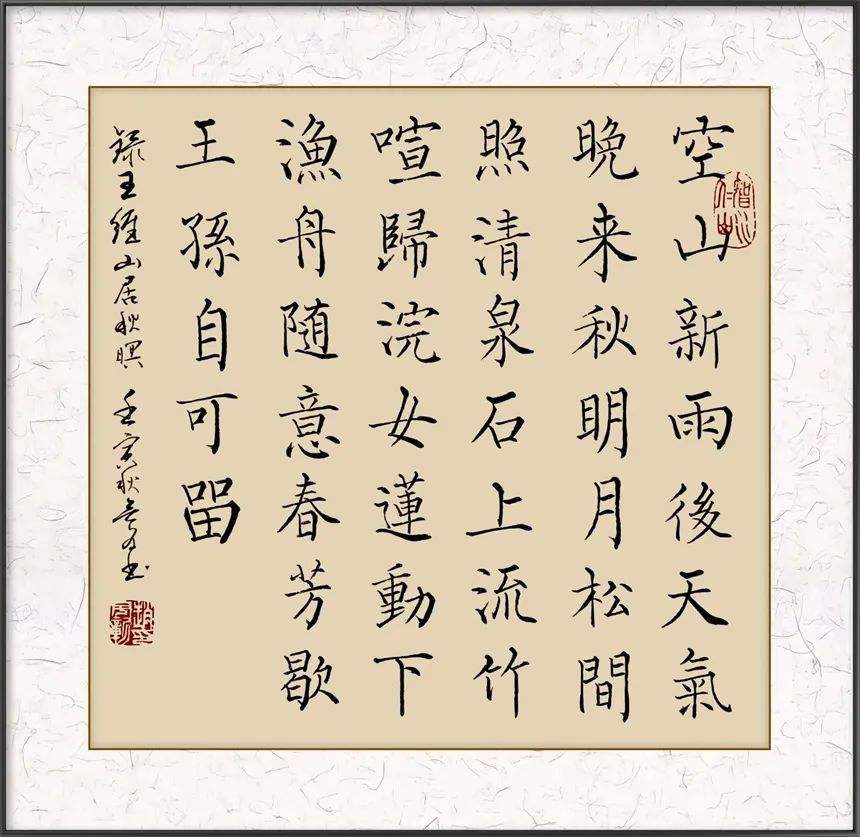 空山新雨後天氣
晚来秋明月松間
照清泉石上流竹
喧歸浣女蓮動下
漁舟随意春芳歇
王孫自可㽞
録王維山居秋暝 壬寅秋書
智水仁山